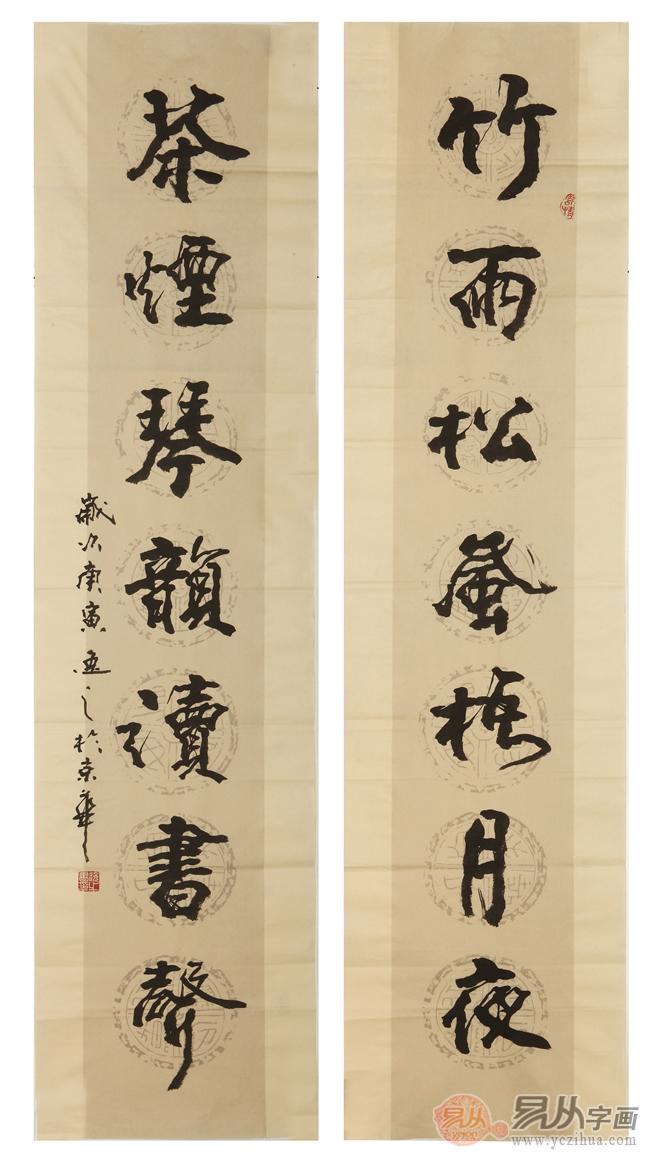 竹雨松風梧月夜
茶煙琴韻讀書聲
歲次庚寅
之於京華
易从字画
www.yczihua.com